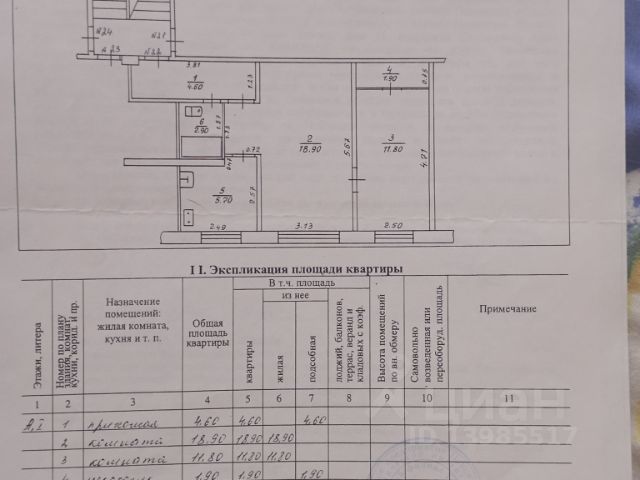 №24
№21
№23
№22
3.81
1
4.60
1.23
4
1.90
0.75
6
2.90
1.57
1.73
2
18.90
5.67
3
11.80
4.71
0.72
0.47
5
5.70
2.57
2.49
3.13
2.50
II. Экспликация площади квартиры
Этажи, литера
Номер по плану здания, комнат, кухни, корид. и пр.
Назначение помещений: жилая комната, кухня и т. п.
Общая площадь квартиры
В т.ч. площадь
из нее
квартиры
жилая
подсобная
лоджий, балконов, террас, веранд и кладовых с коэф.
Высота помещений по вн. обмеру
Самовольно возведенная или переоборуд. площадь
Примечание
1 2 3 4 5 6 7 8 9 10 11
А,I 1 прихожая 4.60 4.60 4.60
2 комната 18.90 18.90 18.90
3 комната 11.80 11.80 11.80
4 1.90 1.90 1.90
циан